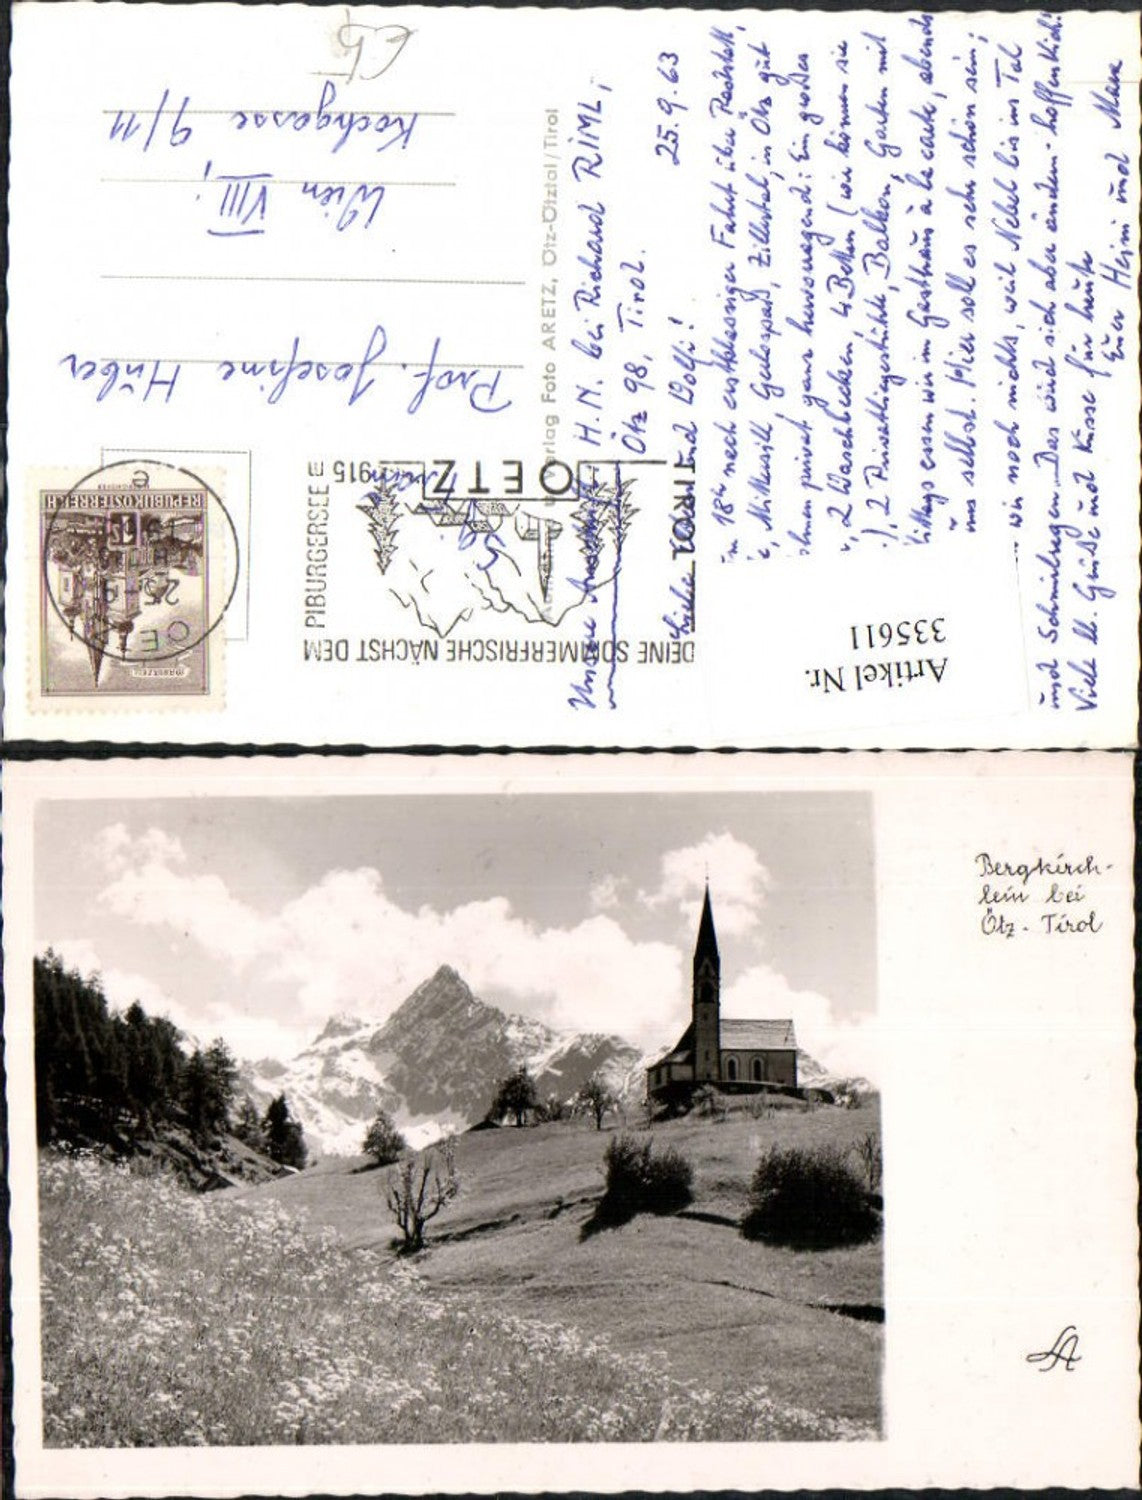 Unsere Anschrift: H. M. bei Richard RIML,
Ötz 98, Tirol.
25.9.63
Liebe und Wolfi!
18h nach erstklassiger Fahrt über Radstatt,
Gerlospaß, Zillertal, in Ötz gut
privat ganz hervorragend: Ein großes
2 Waschbecken, 4 Betten (wir können sie
), 2 Privatliegestühle, Balkon, Garten mit
Mittags essen wir im Gasthaus à la carte, abends
uns selbst. Hier soll es sehr schön sein;
wir noch nichts, weil Nebel bis ins Tal
und Schnürlregen. Das wird sich aber ändern - hoffentlich!
Viele ll. Grüße und Küsse für heute
Euer Heini und Maxe
Verlag Foto ARETZ, Ötz-Ötztal/Tirol
Prof. Josefine Huber
Wien VIII;
Kochgasse 9/11
REPUBLIK ÖSTERREICH
1S
MARKT
OE
25.-9
e
DEINE SOMMERFRISCHE NÄCHST DEM
PIBURGERSEE
915m
OETZ
TIROL
Artikel Nr.
335611
Bergkirch-
lein bei
Ötz - Tirol
A